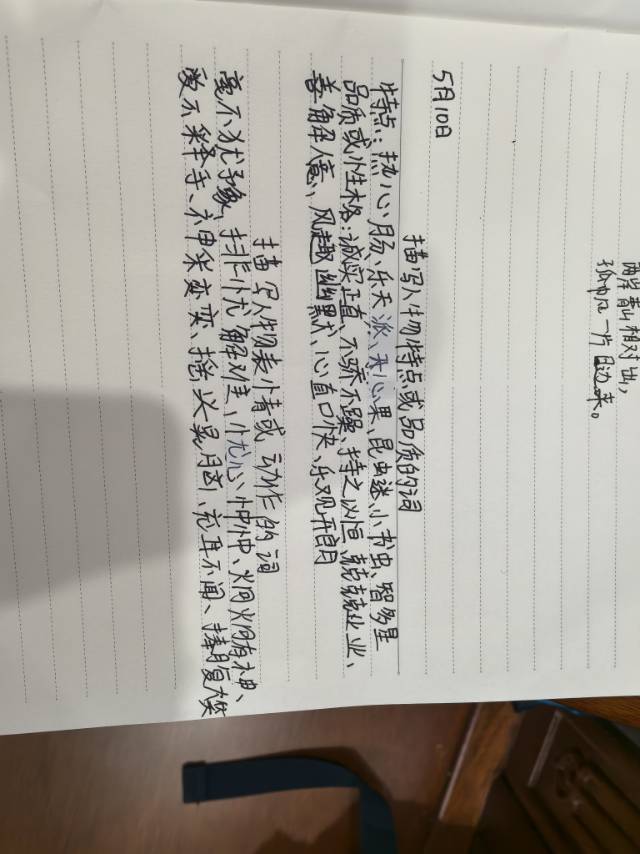 两岸青山相对出，
孤帆一片日边来。
5月10日
描写人物特点或品质的词
特点：热心肠、乐天派、开心果、昆虫迷、小书虫、智多星
品质或性格：诚实正直、不骄不躁、持之以恒、兢兢业业、
善解人意、风趣幽默、心直口快、乐观开朗
描写人物表情或动作的词
毫不犹豫、排忧解难、忧心忡忡、炯炯有神、
爱不释手、神采变变、摇头晃脑、充耳不闻、捧腹大笑